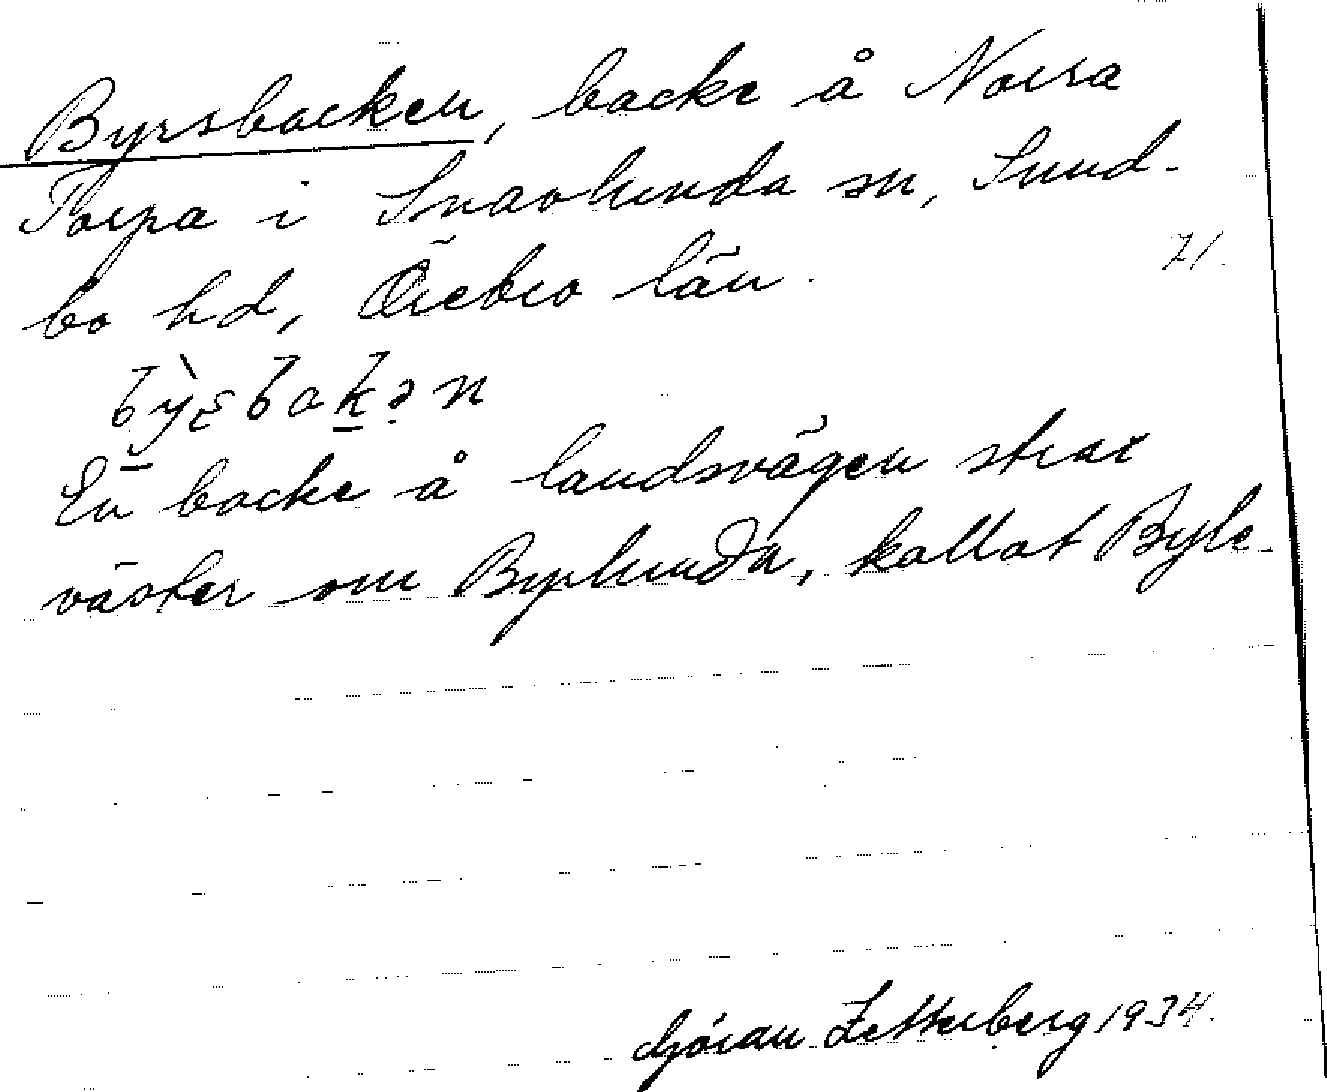 Byrsbacken, backe å Norra
Torpa i Snavlunda sn, Sund-
bo hd, Örebro län.
71.
En backe å landsvägen strax
väster om Byrlunda, kallat Byle-
Göran Zetterberg 1934.